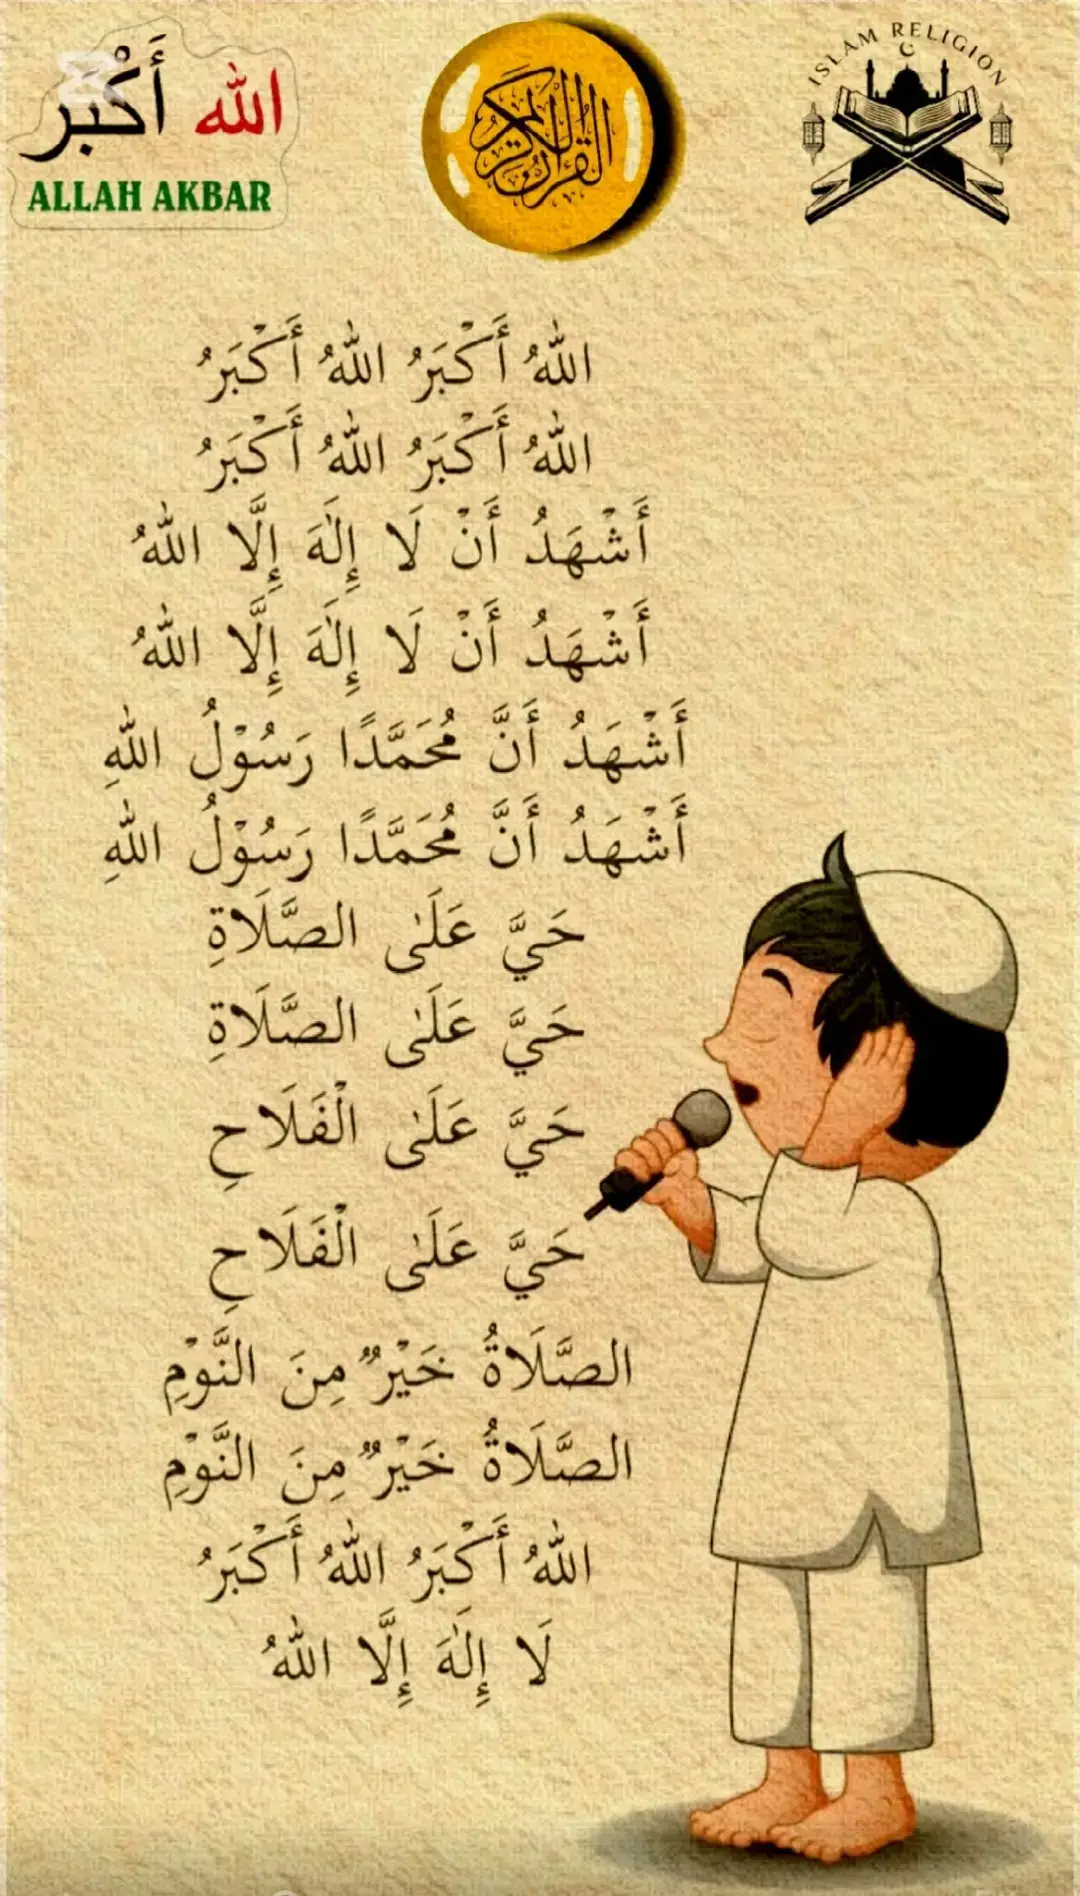 الله أَكْبَر
ALLAH AKBAR
القرآن الكريم
ISLAM RELIGION
اللهُ أَكْبَرُ اللهُ أَكْبَرُ
اللهُ أَكْبَرُ اللهُ أَكْبَرُ
أَشْهَدُ أَنْ لَا إِلٰهَ إِلَّا اللهُ
أَشْهَدُ أَنْ لَا إِلٰهَ إِلَّا اللهُ
أَشْهَدُ أَنَّ مُحَمَّدًا رَسُوْلُ اللهِ
أَشْهَدُ أَنَّ مُحَمَّدًا رَسُوْلُ اللهِ
حَيَّ عَلَىٰ الصَّلَاةِ
حَيَّ عَلَىٰ الصَّلَاةِ
حَيَّ عَلَىٰ الْفَلَاحِ
حَيَّ عَلَىٰ الْفَلَاحِ
الصَّلَاةُ خَيْرٌ مِنَ النَّوْمِ
الصَّلَاةُ خَيْرٌ مِنَ النَّوْمِ
اللهُ أَكْبَرُ اللهُ أَكْبَرُ
لَا إِلٰهَ إِلَّا اللهُ